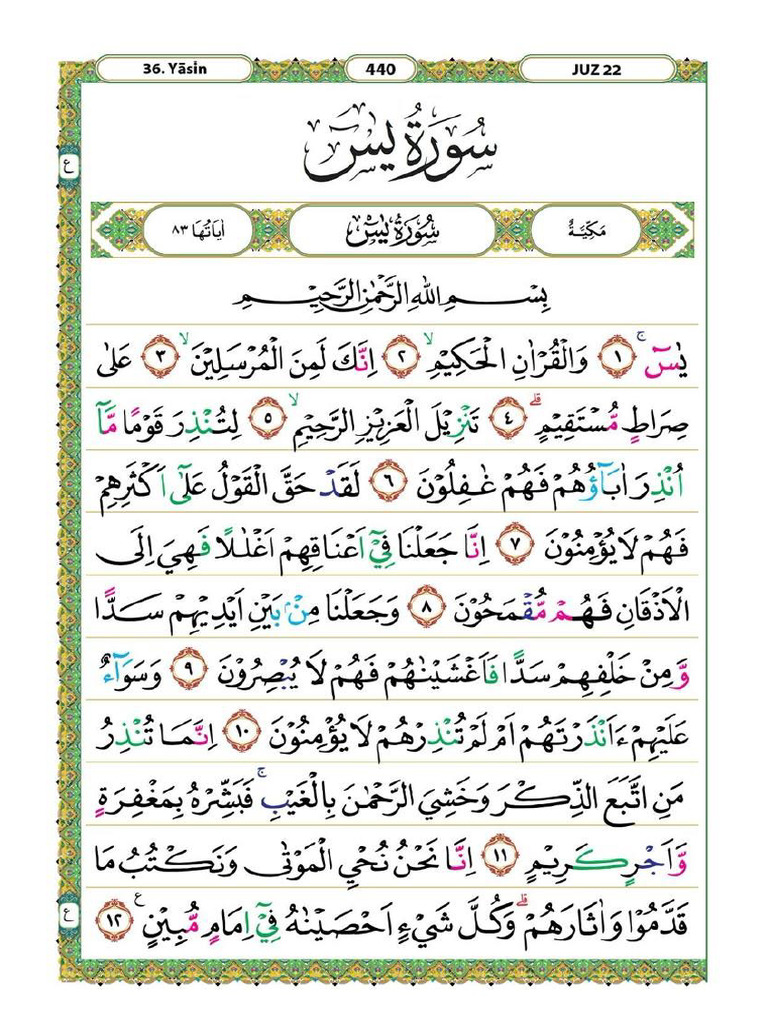 36. Yāsin 440 JUZ 22
سُورَةُ يسٓ
مَكِّيَّةٌ سُوْرَةُ يٰسٓ اٰيَاتُهَا ٨٣
بِسْمِ اللّٰهِ الرَّحْمٰنِ الرَّحِيْمِ
يٰسٓ ۚ ١ وَالْقُرْاٰنِ الْحَكِيْمِۙ ٢ اِنَّكَ لَمِنَ الْمُرْسَلِيْنَۙ ٣ عَلٰى
صِرَاطٍ مُّسْتَقِيْمٍۗ ٤ تَنْزِيْلَ الْعَزِيْزِ الرَّحِيْمِۙ ٥ لِتُنْذِرَ قَوْمًا مَّآ
اُنْذِرَ اٰبَاۤؤُهُمْ فَهُمْ غٰفِلُوْنَ ٦ لَقَدْ حَقَّ الْقَوْلُ عَلٰٓى اَكْثَرِهِمْ
فَهُمْ لَا يُؤْمِنُوْنَ ٧ اِنَّا جَعَلْنَا فِيْٓ اَعْنَاقِهِمْ اَغْلٰلًا فَهِيَ اِلَى
الْاَذْقَانِ فَهُمْ مُّقْمَحُوْنَ ٨ وَجَعَلْنَا مِنْۢ بَيْنِ اَيْدِيْهِمْ سَدًّا
وَّمِنْ خَلْفِهِمْ سَدًّا فَاَغْشَيْنٰهُمْ فَهُمْ لَا يُبْصِرُوْنَ ٩ وَسَوَاۤءٌ
عَلَيْهِمْ ءَاَنْذَرْتَهُمْ اَمْ لَمْ تُنْذِرْهُمْ لَا يُؤْمِنُوْنَ ١٠ اِنَّمَا تُنْذِرُ
مَنِ اتَّبَعَ الذِّكْرَ وَخَشِيَ الرَّحْمٰنَ بِالْغَيْبِۚ فَبَشِّرْهُ بِمَغْفِرَةٍ
وَّاَجْرٍ كَرِيْمٍ ١١ اِنَّا نَحْنُ نُحْيِ الْمَوْتٰى وَنَكْتُبُ مَا
قَدَّمُوْا وَاٰثَارَهُمْۗ وَكُلَّ شَيْءٍ اَحْصَيْنٰهُ فِيْٓ اِمَامٍ مُّبِيْنٍ ࣖ ١٢
ع
ع